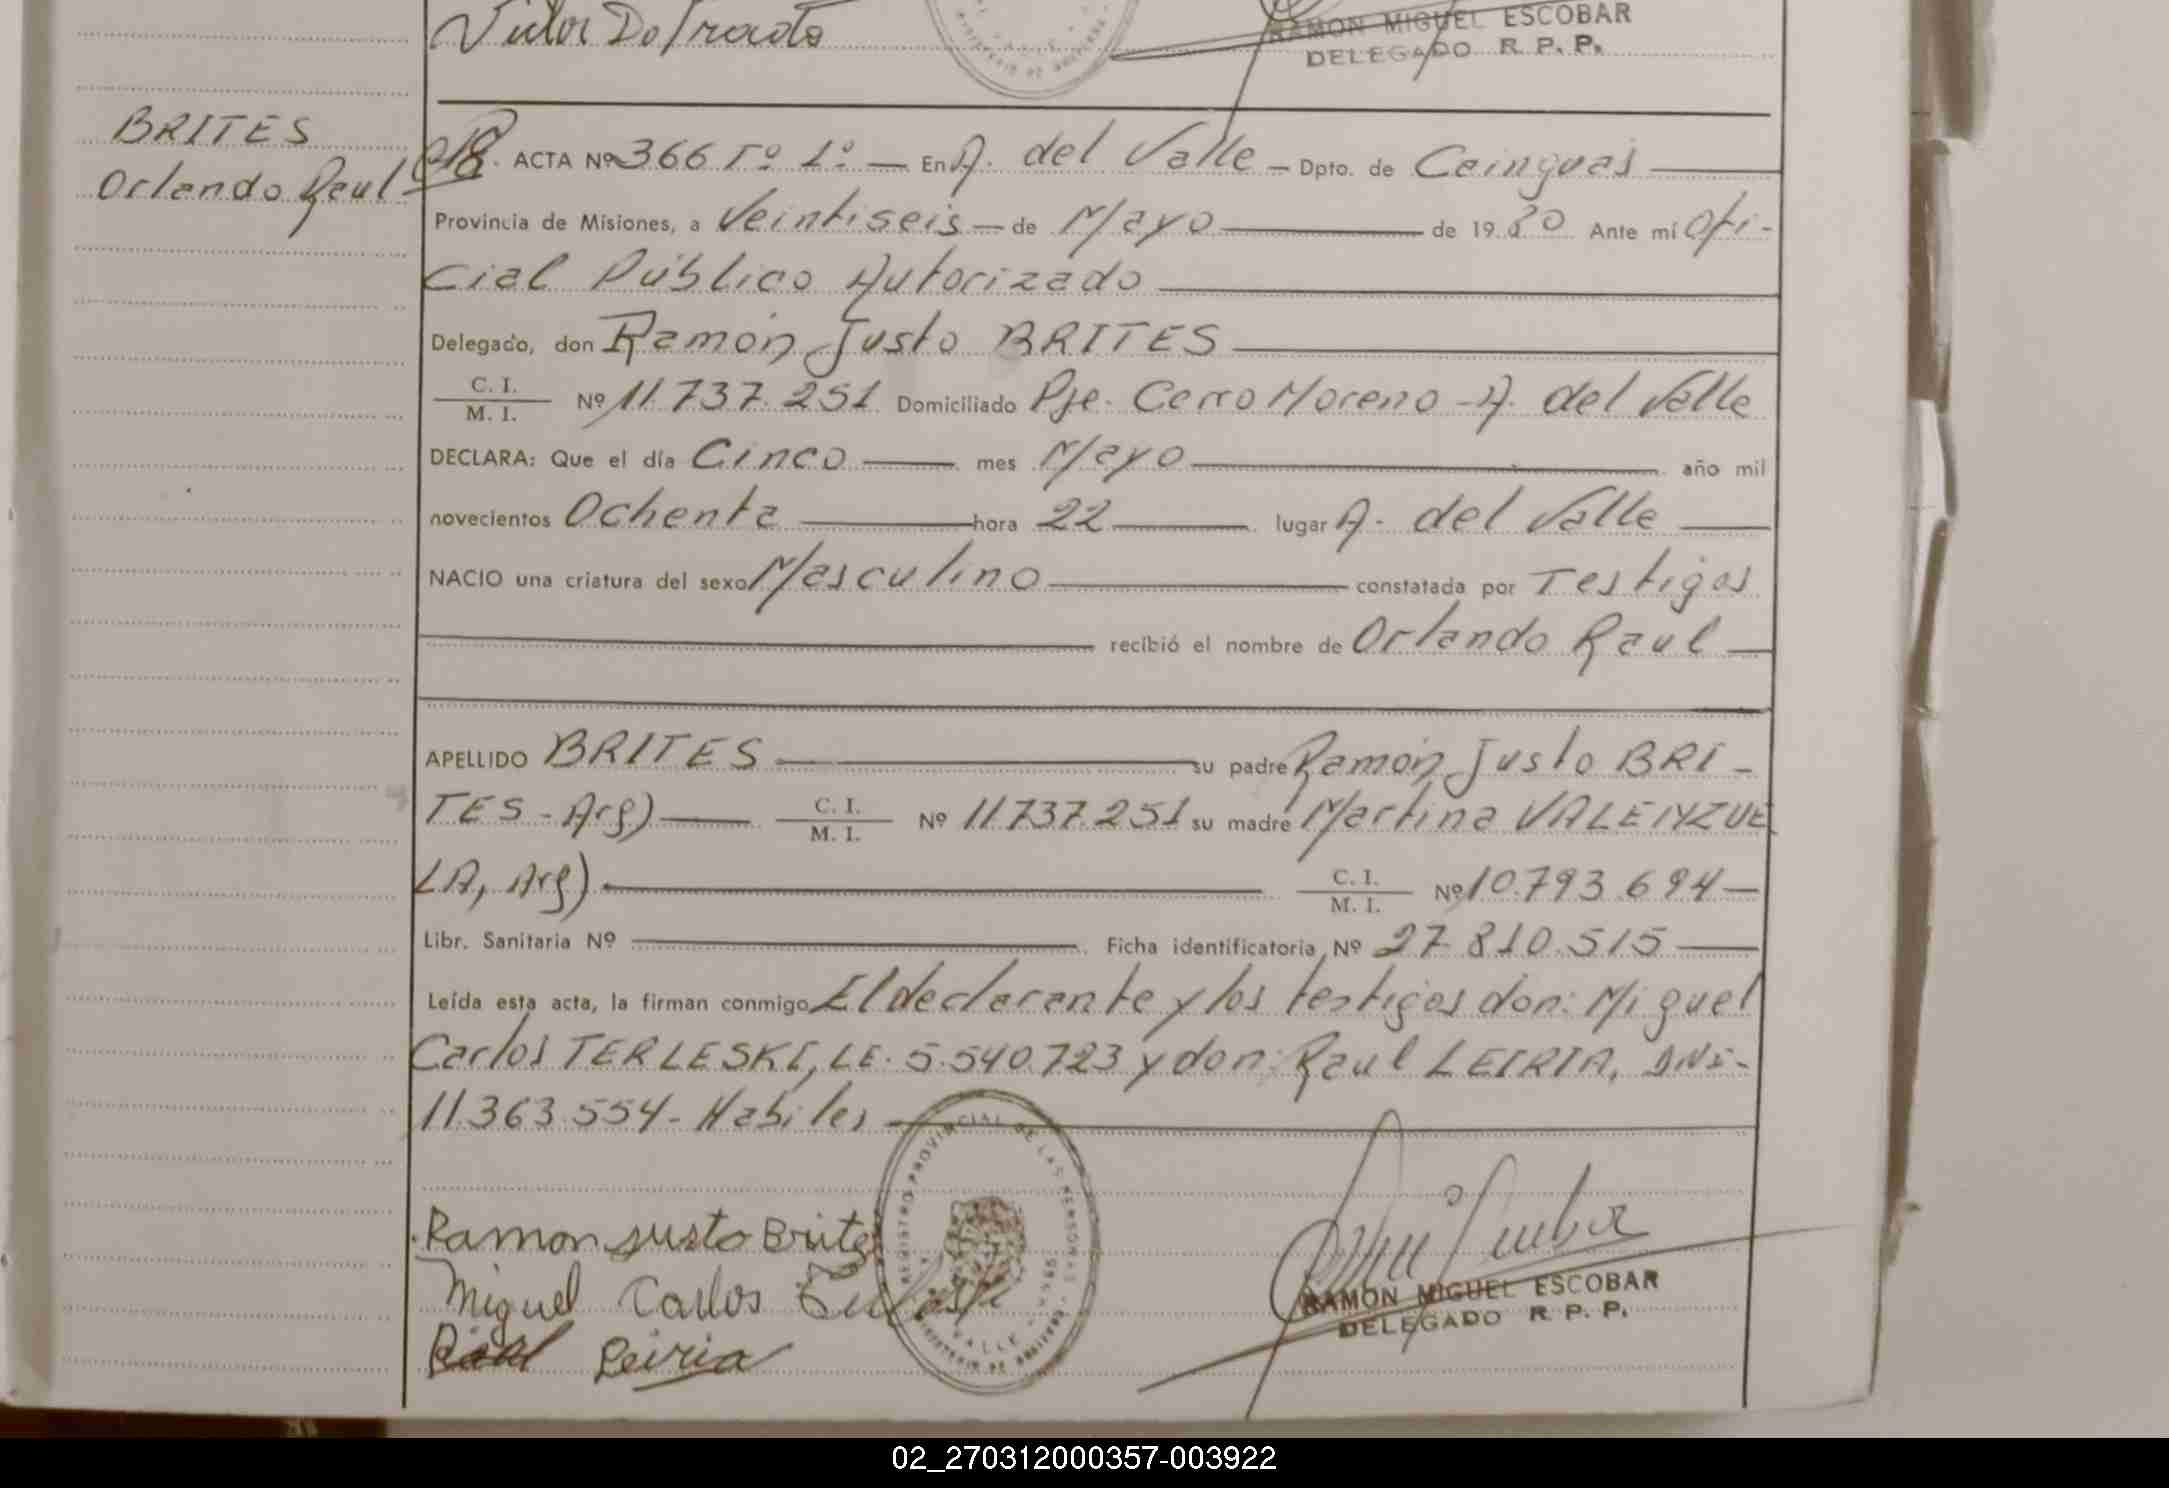 RAMON MIGUEL ESCOBAR
DELEGADO R. P. P.
BRITES
Orlando Raul
ACTA Nº 366 Tº 1º — En A. del Valle — Dpto. de Cainguas
Provincia de Misiones, a Veintiseis — de Mayo — de 19 80 Ante mí Ofi-
cial Público Autorizado
Delegado, don Ramón Justo BRITES
C. I.
M. I. Nº 11.737.251 Domiciliado Pje. Cerro Moreno - A. del Valle
DECLARA: Que el día Cinco — mes Mayo — año mil
novecientos Ochenta — hora 22 — lugar A. del Valle
NACIO una criatura del sexo Masculino — constatada por Testigos
recibió el nombre de Orlando Raul
APELLIDO BRITES — su padre Ramón Justo BRI-
TES - Arg) — C. I. M. I. Nº 11.737.251 su madre Martina VALENZUE
LA, Arg) — C. I. M. I. Nº 10.793.694
Libr. Sanitaria Nº — Ficha identificatoria Nº 27.810.515
Leída esta acta, la firman conmigo El declarante y los testigos don: Miguel
Carlos TERLESKI, LE. 5.540.723 y don: Raul LEIRIA, DNI-
11.363.554 - Habiles
Ramon Justo Brites
Miguel Carlos
Raul Leiria
REGISTRO PROVINCIAL DE LAS PERSONAS
RAMON MIGUEL ESCOBAR
DELEGADO R. P. P.
02_270312000357-003922